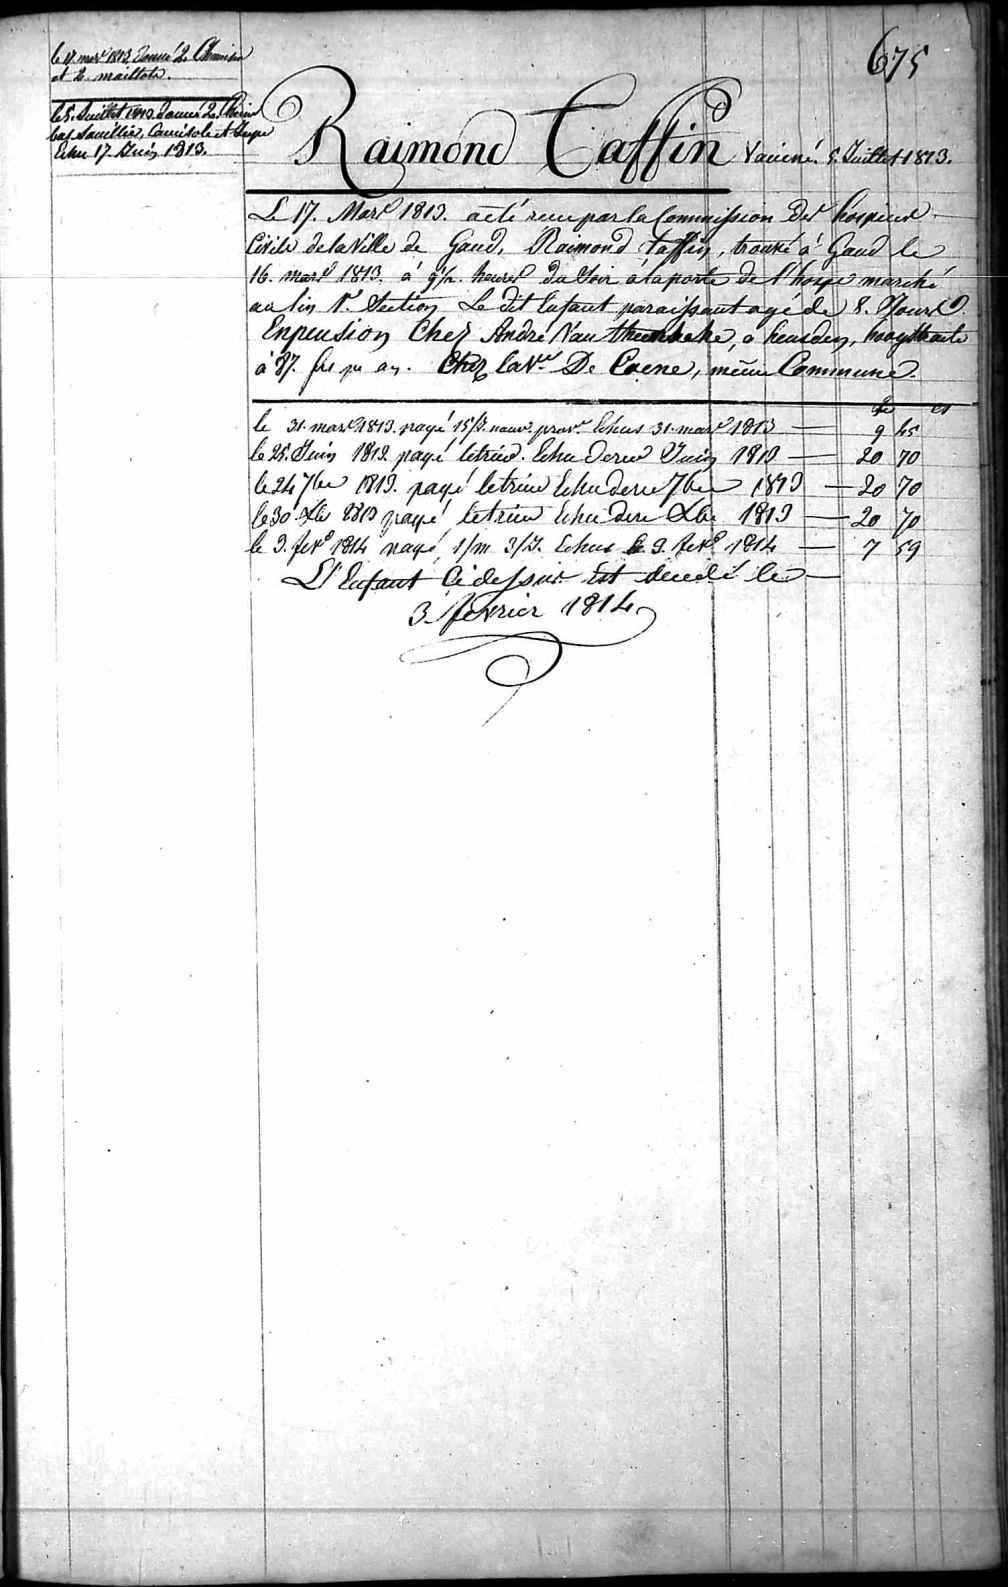 675
le 17. mars 1813. Donné 2. Chemises
et 2. maillots.
le 5. Juillet 1813. Donné 2. Chem
bas Souillier, Camisole et Jupe
Echu 17. Juin 1813.
Raimond Taffin Vaciené. 5. Juillet 1813.
Le 17. Mars 1813. a été reçu par la Commission des hospices
Civils de la Ville de Gand, Raimond Taffin, trouvé à Gand le
16. mars 1813. à 9 1/2. heures du Soir à la porte de l'hospe marché
au lin 1e. Section. Le dit Enfant paraissant agé de 8. Jours.
En pension Chez André Van, a heusden,
à 87. frs pr an. Chez la Ve. De Coene, même Commune.
fr cs
le 31. mars 1813. payé 15/J. nouv. prov. Echus 31. mars 1813 — 9 45
le 25. Juin 1813. payé letrim. Echu dere Juin 1813 — 20 70
le 24 7bre 1813. payé letrim Echu dere 7bre 1813 — 20 70
le 30 Xbr 1813 payé letrim Echu dere Xbr 1813 — 20 70
le 3. fevr 1814 payé 1/m 3/J. Echus le 3. fevr 1814 — 7 59
L'Enfant Cidessus Est decedé le —
3. fevrier 1814